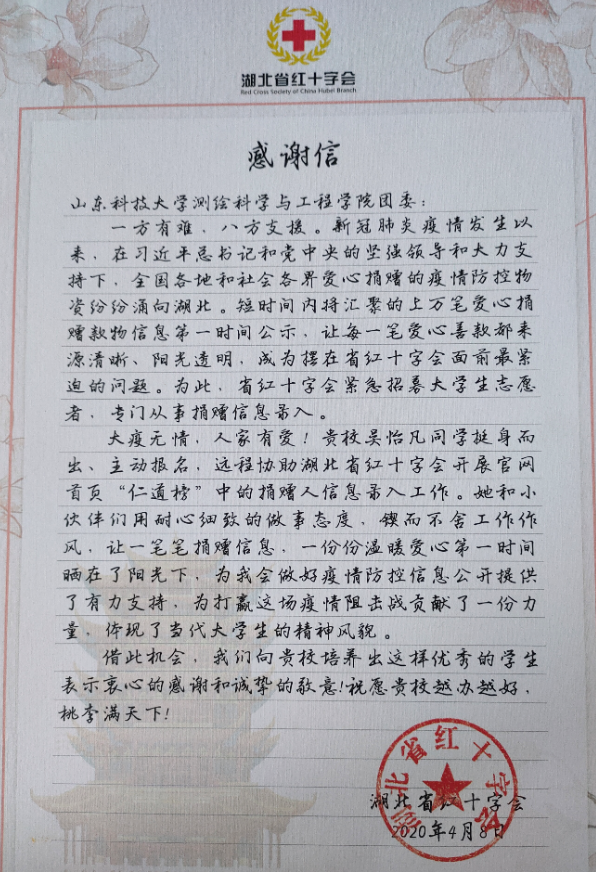 湖北省红十字会
Red Cross Society of China Hubei Branch
感谢信
山东科技大学测绘科学与工程学院团委：
一方有难，八方支援。新冠肺炎疫情发生以
来，在习近平总书记和党中央的坚强领导和大力支
持下，全国各地和社会各界爱心捐赠的疫情防控物
资纷纷涌向湖北。短时间内将汇聚的上万笔爱心捐
赠款物信息第一时间公示，让每一笔爱心善款都来
源清晰、阳光透明，成为摆在省红十字会面前最紧
迫的问题。为此，省红十字会紧急招募大学生志愿
者，专门从事捐赠信息录入。
大疫无情，人家有爱！贵校吴怡凡同学挺身而
出、主动报名，远程协助湖北省红十字会开展官网
首页“仁道榜”中的捐赠人信息录入工作。她和小
伙伴们用耐心细致的做事态度，锲而不舍工作作
风，让一笔笔捐赠信息，一份份温暖爱心第一时间
晒在了阳光下，为我会做好疫情防控信息公开提供
了有力支持，为打赢这场疫情阻击战贡献了一份力
量，体现了当代大学生的精神风貌。
借此机会，我们向贵校培养出这样优秀的学生
表示衷心的感谢和诚挚的敬意！祝愿贵校越办越好，
桃李满天下！
湖北省红十字会
湖北省红十字会
2020年4月8日